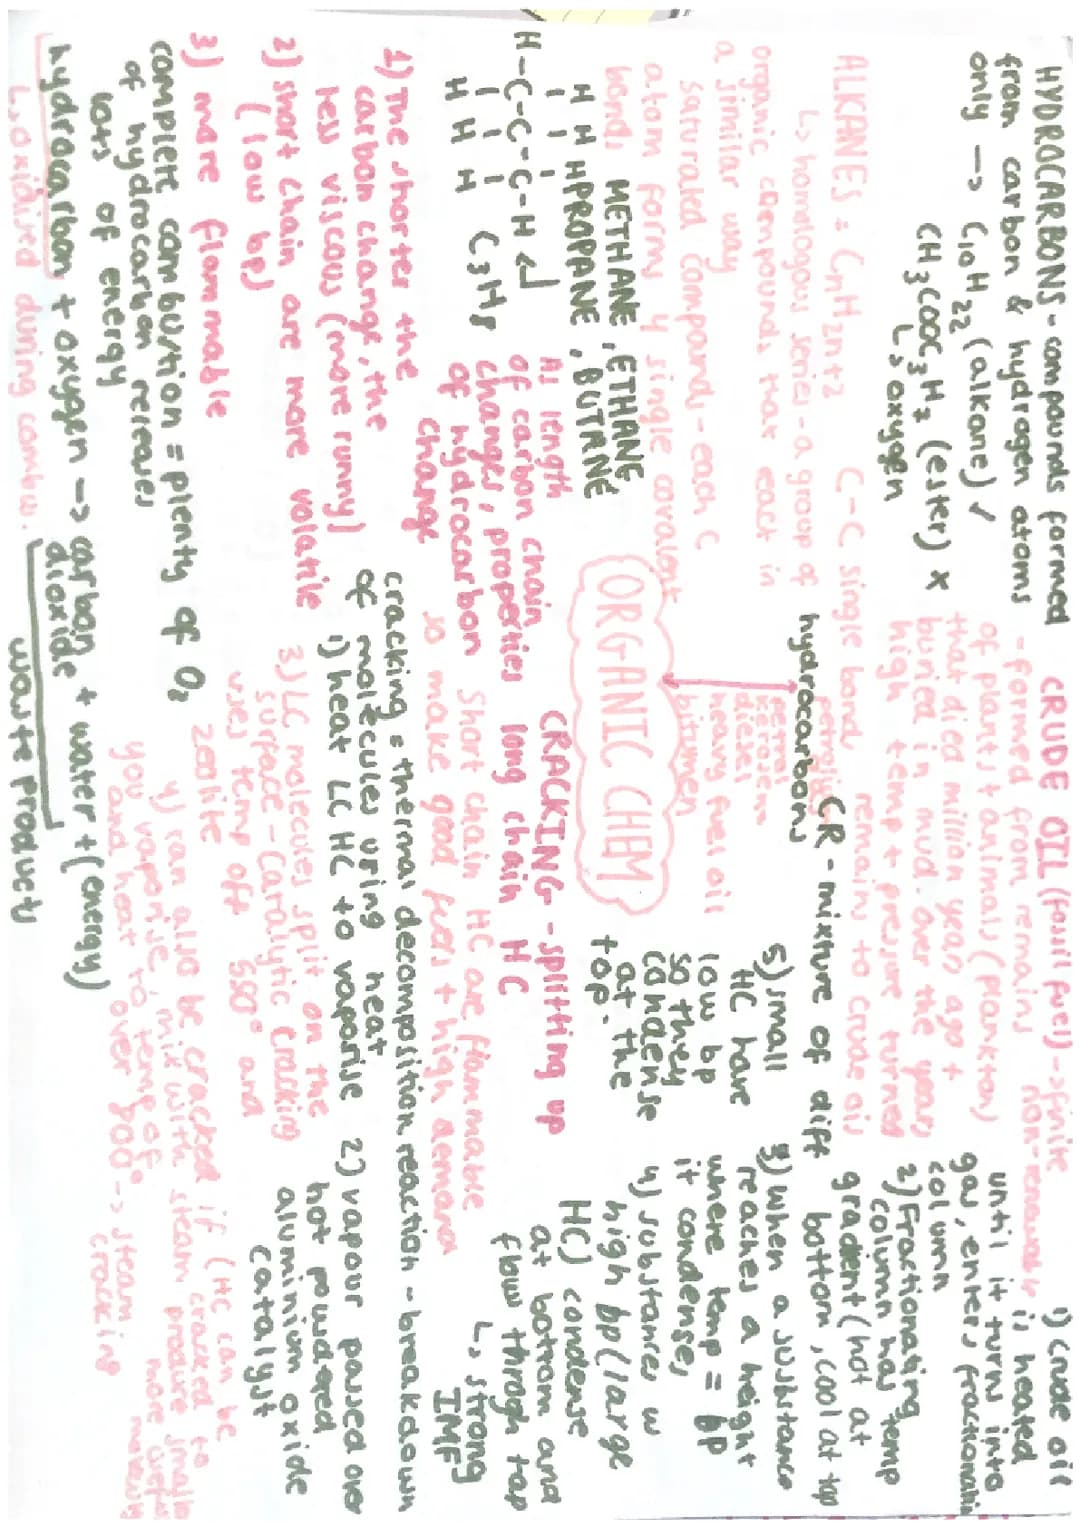 HYDROCARBONS - compounds formed
from carbon & hydrogen atoms
only → C10H22 (alkane) ✓
CH3COOC3H7 (ester) x
↳ oxygen
ALKANES = CnH2n+2 C-C single bond
↳ homologous series - a group of
organic compounds that eact in
a similar way
saturated compounds - each C
atom forms 4 single covalent
bonds
METHANE, ETHANE
PROPANE, BUTANE
H H H
H-C-C-C-H
H H H
C3H8
As length
of carbon chain
changes, properties
of hydrocarbon
change
1) The shorter the
carbon change, the
less viscous (more runny)
2) short chain are more volatile
(low bp)
3) more flammable
complete combustion = plenty of O2
of hydrocarbon releases
lots of energy
hydrocarbon + oxygen → carbon dioxide + water + (energy)
↳ oxidised during combus.
waste products
ORGANIC CHEM
CRUDE OIL (fossil fuel) → finite
non-renewable
- formed from remains
of plants + animals (plankton)
that died million years ago +
buried in mud. over the years
high temp + pressure turned
remains to crude oil
CR - mixture of diff
hydrocarbons
petrol
kerosene
diesel
heavy fuel oil
bitumen
1) crude oil
is heated
until it turns into
gas, enters fractionating
column
2) Fractionating
column has temp
gradient (hot at
bottom, cool at top
3) when a substance
reaches a height
where temp = bp
it condenses
4) substances w
high bp (large
HC) condense
at bottom and
flow through tap
↳ strong
IMF
5) small
HC have
low bp
so they
condense
at the
top.
CRACKING - splitting up
long chain HC
short chain HC are flammable
so make good fuels + high demand
cracking = thermal decomposition reaction - breakdown
of molecules using heat
1) heat LC HC to vaporise
2) vapour passed over
hot powdered
aluminium oxide
catalyst
3) LC molecules split on the
surface - catalytic cracking
uses temp off 550° and
zeolite
4) can also be cracked if
you vaporise, mix with steam
and heat to temp of
over 800° → steam
cracking
(HC can be
cracked to
produce smaller
more useful